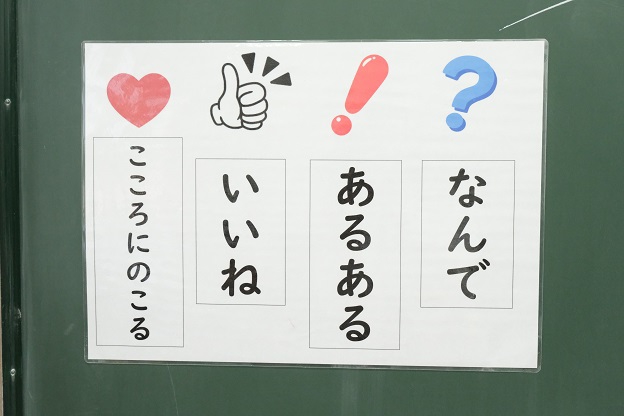 なんで
あるある
いいね
こころにのこる